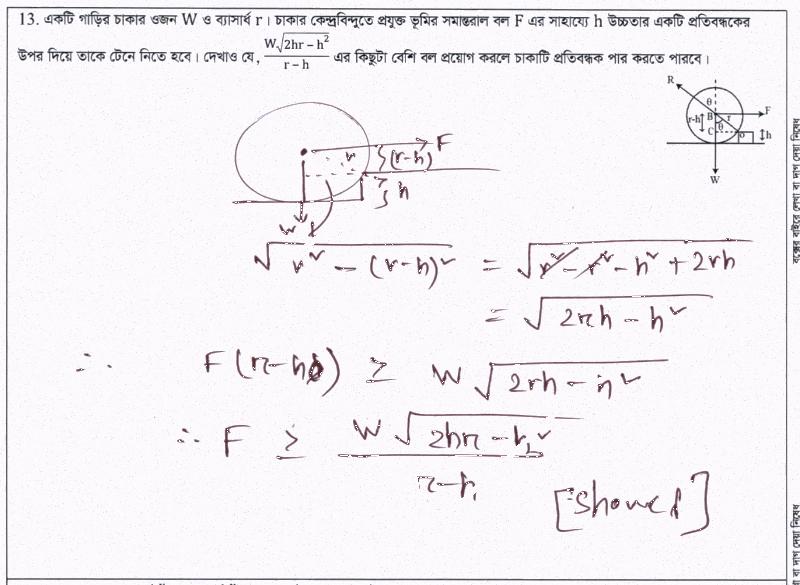 13. একটি গাড়ির চাকার ওজন W ও ব্যাসার্ধ r । চাকার কেন্দ্রবিন্দুতে প্রযুক্ত ভূমির সমান্তরাল বল F এর সাহায্যে h উচ্চতার একটি প্রতিবন্ধকের
উপর দিয়ে তাকে টেনে নিতে হবে। দেখাও যে, W√(2hr − h²) / (r − h) এর কিছুটা বেশি বল প্রয়োগ করলে চাকাটি প্রতিবন্ধক পার করতে পারবে।
R
θ
B
F
r-h
r
θ
C
O
h
W
F
r
(r-h)
h
W
√(r² − (r-h)²) = √(r² − r² − h² + 2rh)
= √(2rh − h²)
∴ F(r-h) ≥ W √(2rh − h²)
∴ F ≥ W √(2hr − h²) / (r-h)
[Showed]
বক্সের বাইরে লেখা বা দাগ দেয়া নিষেধ
বা দাগ দেয়া নিষেধ